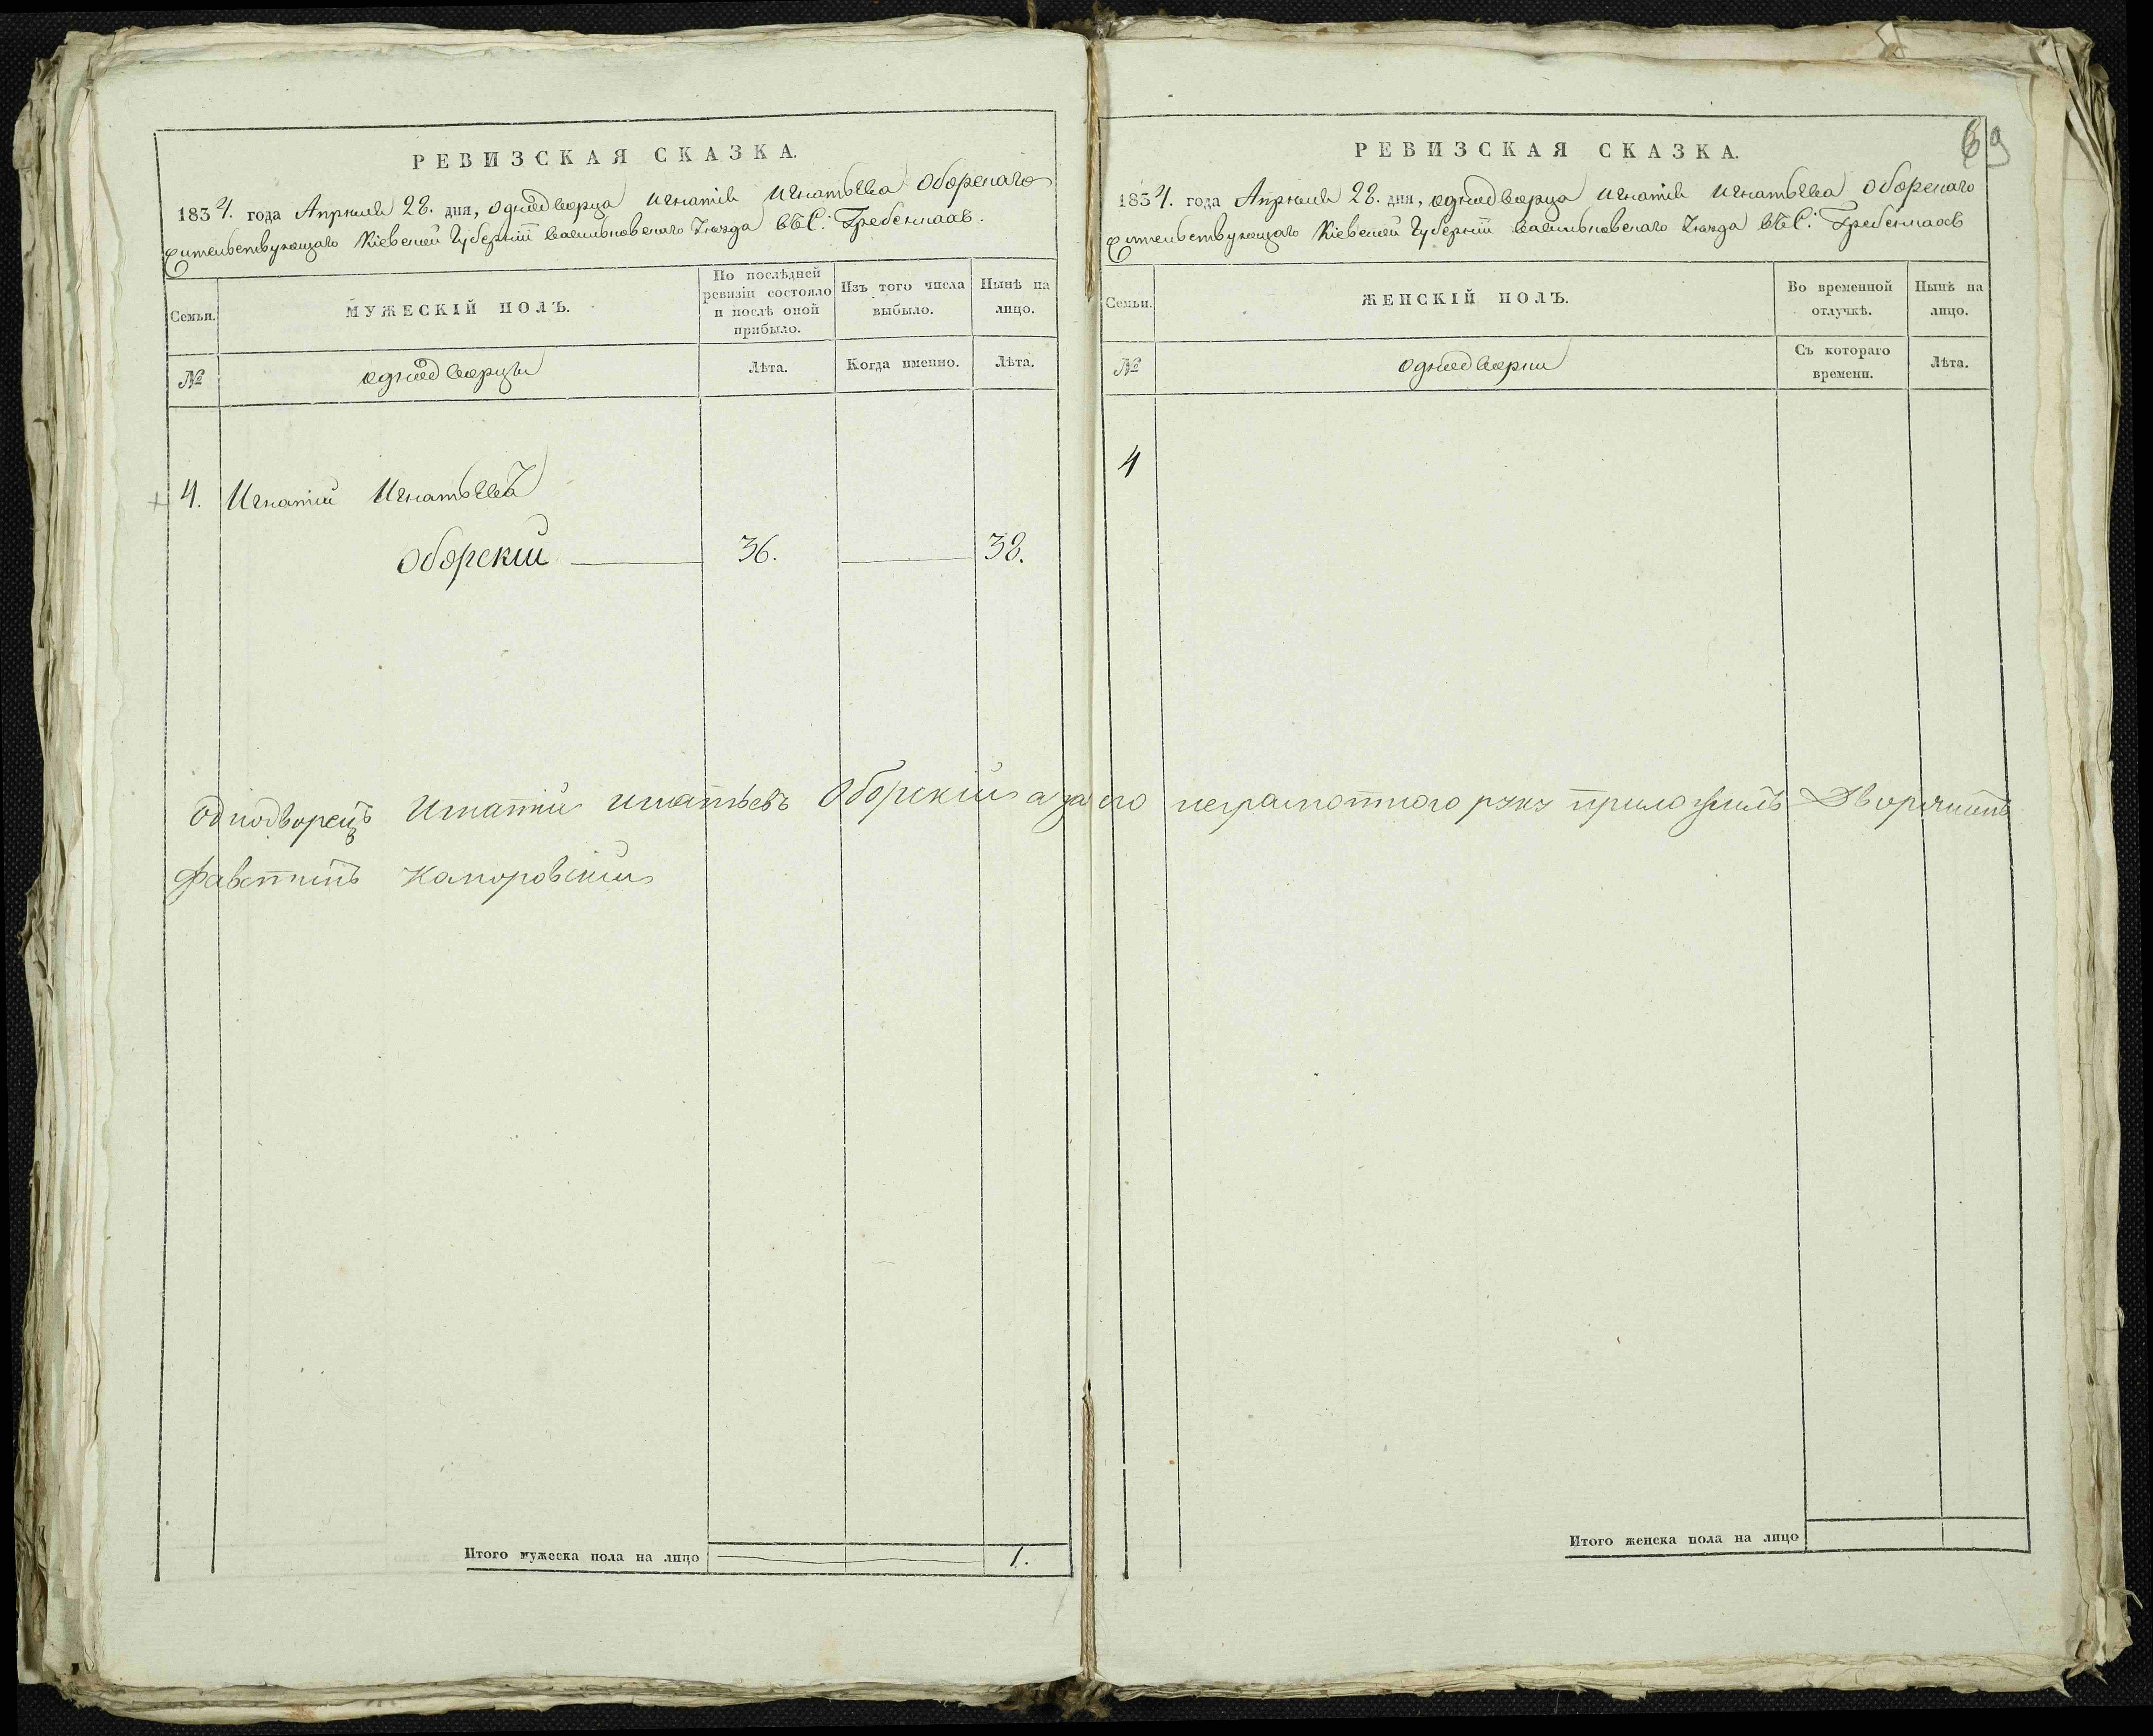 РЕВИЗСКАЯ СКАЗКА.
1834. года Апреля 28. дня, однодворца Игнатія Игнатьева Оборскаго
жительствующаго Кіевской Губерніи Васильковскаго уезда въ С: Гребенкахъ.
Семьи.
МУЖЕСКІЙ ПОЛЪ.
По послѣдней ревизіи состояло и послѣ оной прибыло.
Изъ того числа выбыло.
Нынѣ на лицо.
№
однодворцы
Лѣта.
Когда именно.
Лѣта.
4. Игнатій Игнатьевъ
Оборскій 36. 38.
Итого мужеска пола на лицо 1.
69
РЕВИЗСКАЯ СКАЗКА.
1834. года Апреля 28. дня, однодворца Игнатія Игнатьева Оборскаго
жительствующаго Кіевской Губерніи Васильковскаго уезда въ С: Гребенкахъ
Семьи.
ЖЕНСКІЙ ПОЛЪ.
Во временной отлучкѣ.
Нынѣ на лицо.
№
однодворки
Съ котораго времени.
Лѣта.
4
однодворецъ Игнатій игнатьевъ Оборскій а за его неграмотного руку приложилъ Дворянинъ
Фавстинъ
Итого женска пола на лицо